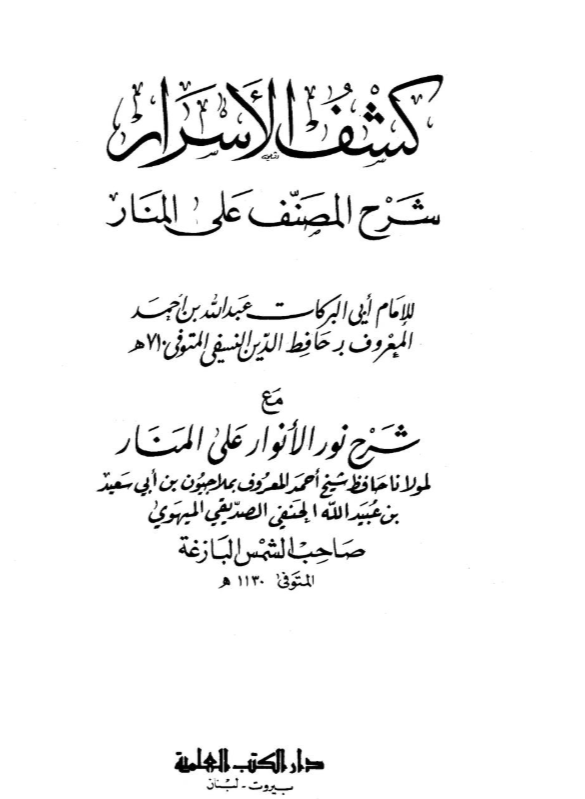 كشف الأسرار
شرح المصنف على المنار
للإمام أبي البركات عبد الله بن أحمد
المعروف بـ حافظ الدين النسفي المتوفى ٧١٠ هـ
مع
شرح نور الأنوار على المنار
لمولانا حافظ شيخ أحمد المعروف بملاجيون بن أبي سعيد
بن عبيد الله الحنفي الصديقي الميهوي
صاحب الشمس البازغة
المتوفى ١١٣٠ هـ
دار الكتب العلمية
بيروت - لبنان